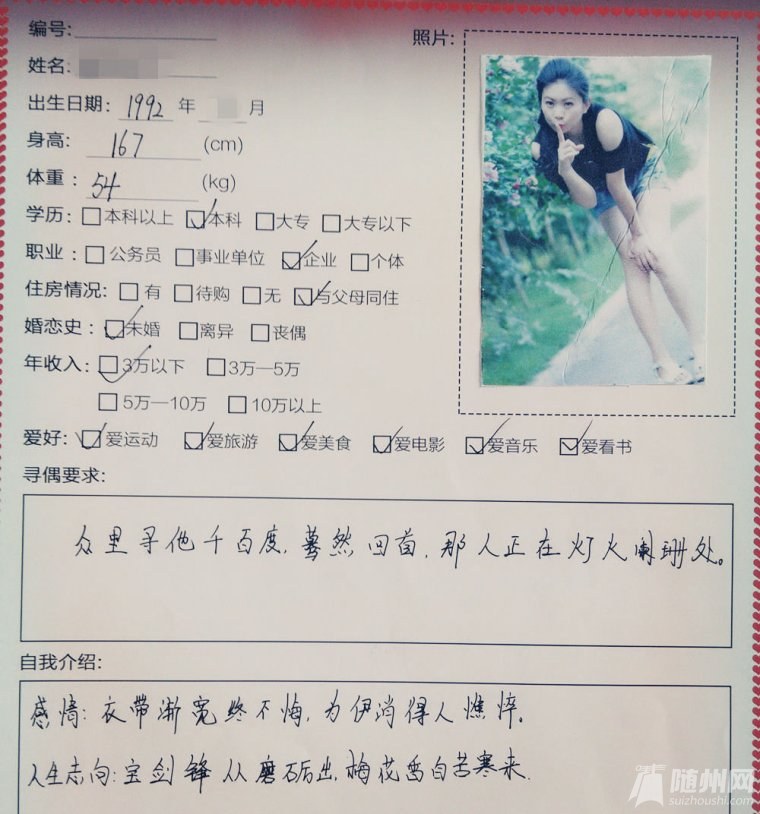 编号:
照片:
姓名:
出生日期: 1992 年 月
身高: 167 (cm)
体重: 54 (kg)
学历: 本科以上 本科 大专 大专以下
职业: 公务员 事业单位 企业 个体
住房情况: 有 待购 无 与父母同住
婚恋史: 未婚 离异 丧偶
年收入: 3万以下 3万—5万
5万—10万 10万以上
爱好: 爱运动 爱旅游 爱美食 爱电影 爱音乐 爱看书
寻偶要求:
众里寻他千百度,蓦然回首,那人正在灯火阑珊处。
自我介绍:
感情: 衣带渐宽终不悔,为伊消得人憔悴。
人生志向: 宝剑锋从磨砺出,梅花香自苦寒来.
随州网
suizhoushi.com